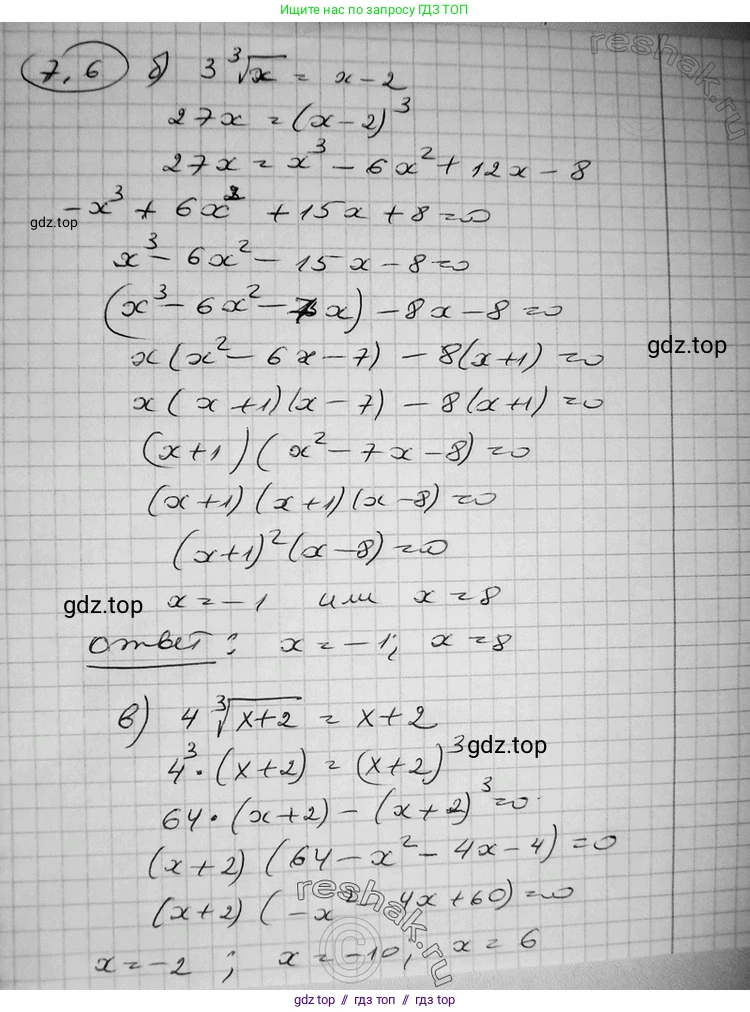 Ищите ответы на сайте по запросу ГДЗ ТОП
reshak.ru
7,6 б) 3∛x = x − 2
27x = (x − 2)³
27x = x³ − 6x² + 12x − 8
−x³ + 6x² + 15x + 8 = 0
gdz.top
x³ − 6x² − 15x − 8 = 0
(x³ − 6x² − 7x) − 8x − 8 = 0
x(x² − 6x − 7) − 8(x+1) = 0
gdz.top
x(x+1)(x − 7) − 8(x+1) = 0
(x+1)(x² − 7x − 8) = 0
(x+1)(x+1)(x − 8) = 0
(x+1)²(x − 8) = 0
gdz.top
x = −1 или x = 8
Ответ: x = −1; x = 8
в) 4∛(x+2) = x+2
4³·(x+2) = (x+2)³
gdz.top
64·(x+2) − (x+2)³ = 0
(x+2)(64 − x² − 4x − 4) = 0
(x+2)(−x² − 4x + 60) = 0
reshak.ru
©
x = −2; x = −10; x = 6
gdz.top // gdz.top // gdz.top